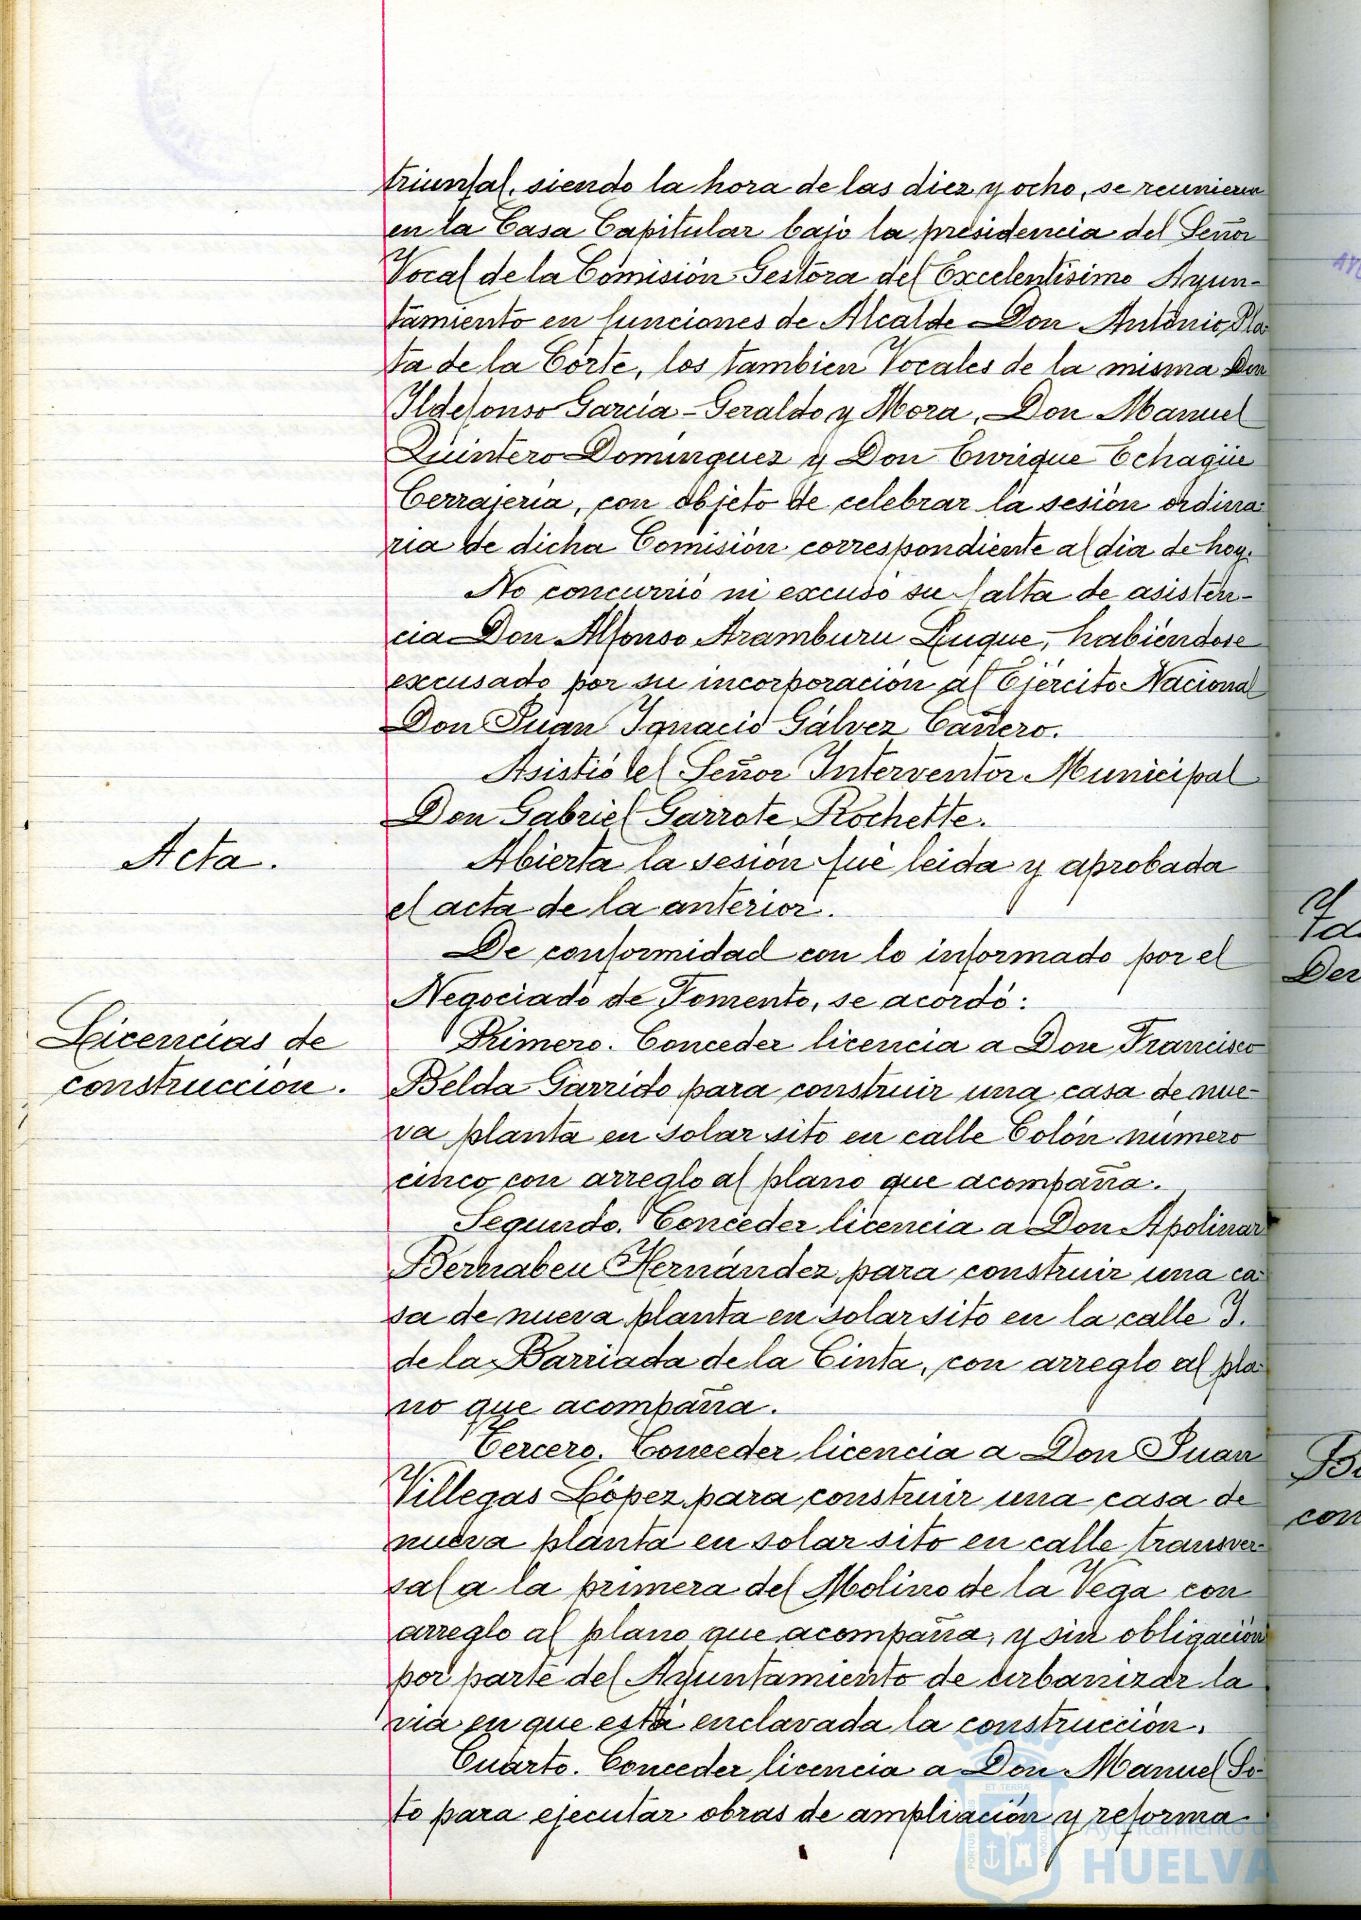 triunfal, siendo la hora de las diez y ocho, se reunieron
en la Casa Capitular bajo la presidencia del Señor
Vocal de la Comisión Gestora del Excelentísimo Ayun-
tamiento en funciones de Alcalde Don Antonio Pla-
ta de la Corte, los tambien Vocales de la misma Don
Ildefonso García-Geraldo y Mora, Don Manuel
Quintero Domínguez y Don Enrique Echagüe
Cerrajería, con objeto de celebrar la sesión ordina-
ria de dicha Comisión correspondiente al dia de hoy.
No concurrió ni excusó su falta de asisten-
cia Don Alfonso Aramburu Luque, habiéndose
excusado por su incorporación al Ejército Nacional
Don Juan Ignacio Gálvez Cañero.
Asistió el Señor Interventor Municipal
Don Gabriel Garrote Rochette.
Acta.
Abierta la sesión fué leida y aprobada
el acta de la anterior.
De conformidad con lo informado por el
Negociado de Fomento, se acordó:
Licencias de
construcción.
Primero. Conceder licencia a Don Francisco
Belda Garrido para construir una casa de nue-
va planta en solar sito en calle Colón número
cinco con arreglo al plano que acompaña.
Segundo. Conceder licencia a Don Apolinar
Bernabeu Hernández para construir una ca-
sa de nueva planta en solar sito en la calle J.
de la Barriada de la Cinta, con arreglo al pla-
no que acompaña.
Tercero. Conceder licencia a Don Juan
Villegas López para construir una casa de
nueva planta en solar sito en calle transver-
sal a la primera del Molino de la Vega con
arreglo al plano que acompaña, y sin obligación
por parte del Ayuntamiento de urbanizar la
via en que está enclavada la construcción.
Cuarto. Conceder licencia a Don Manuel So-
to para ejecutar obras de ampliación y reforma
Ayuntamiento de
HUELVA